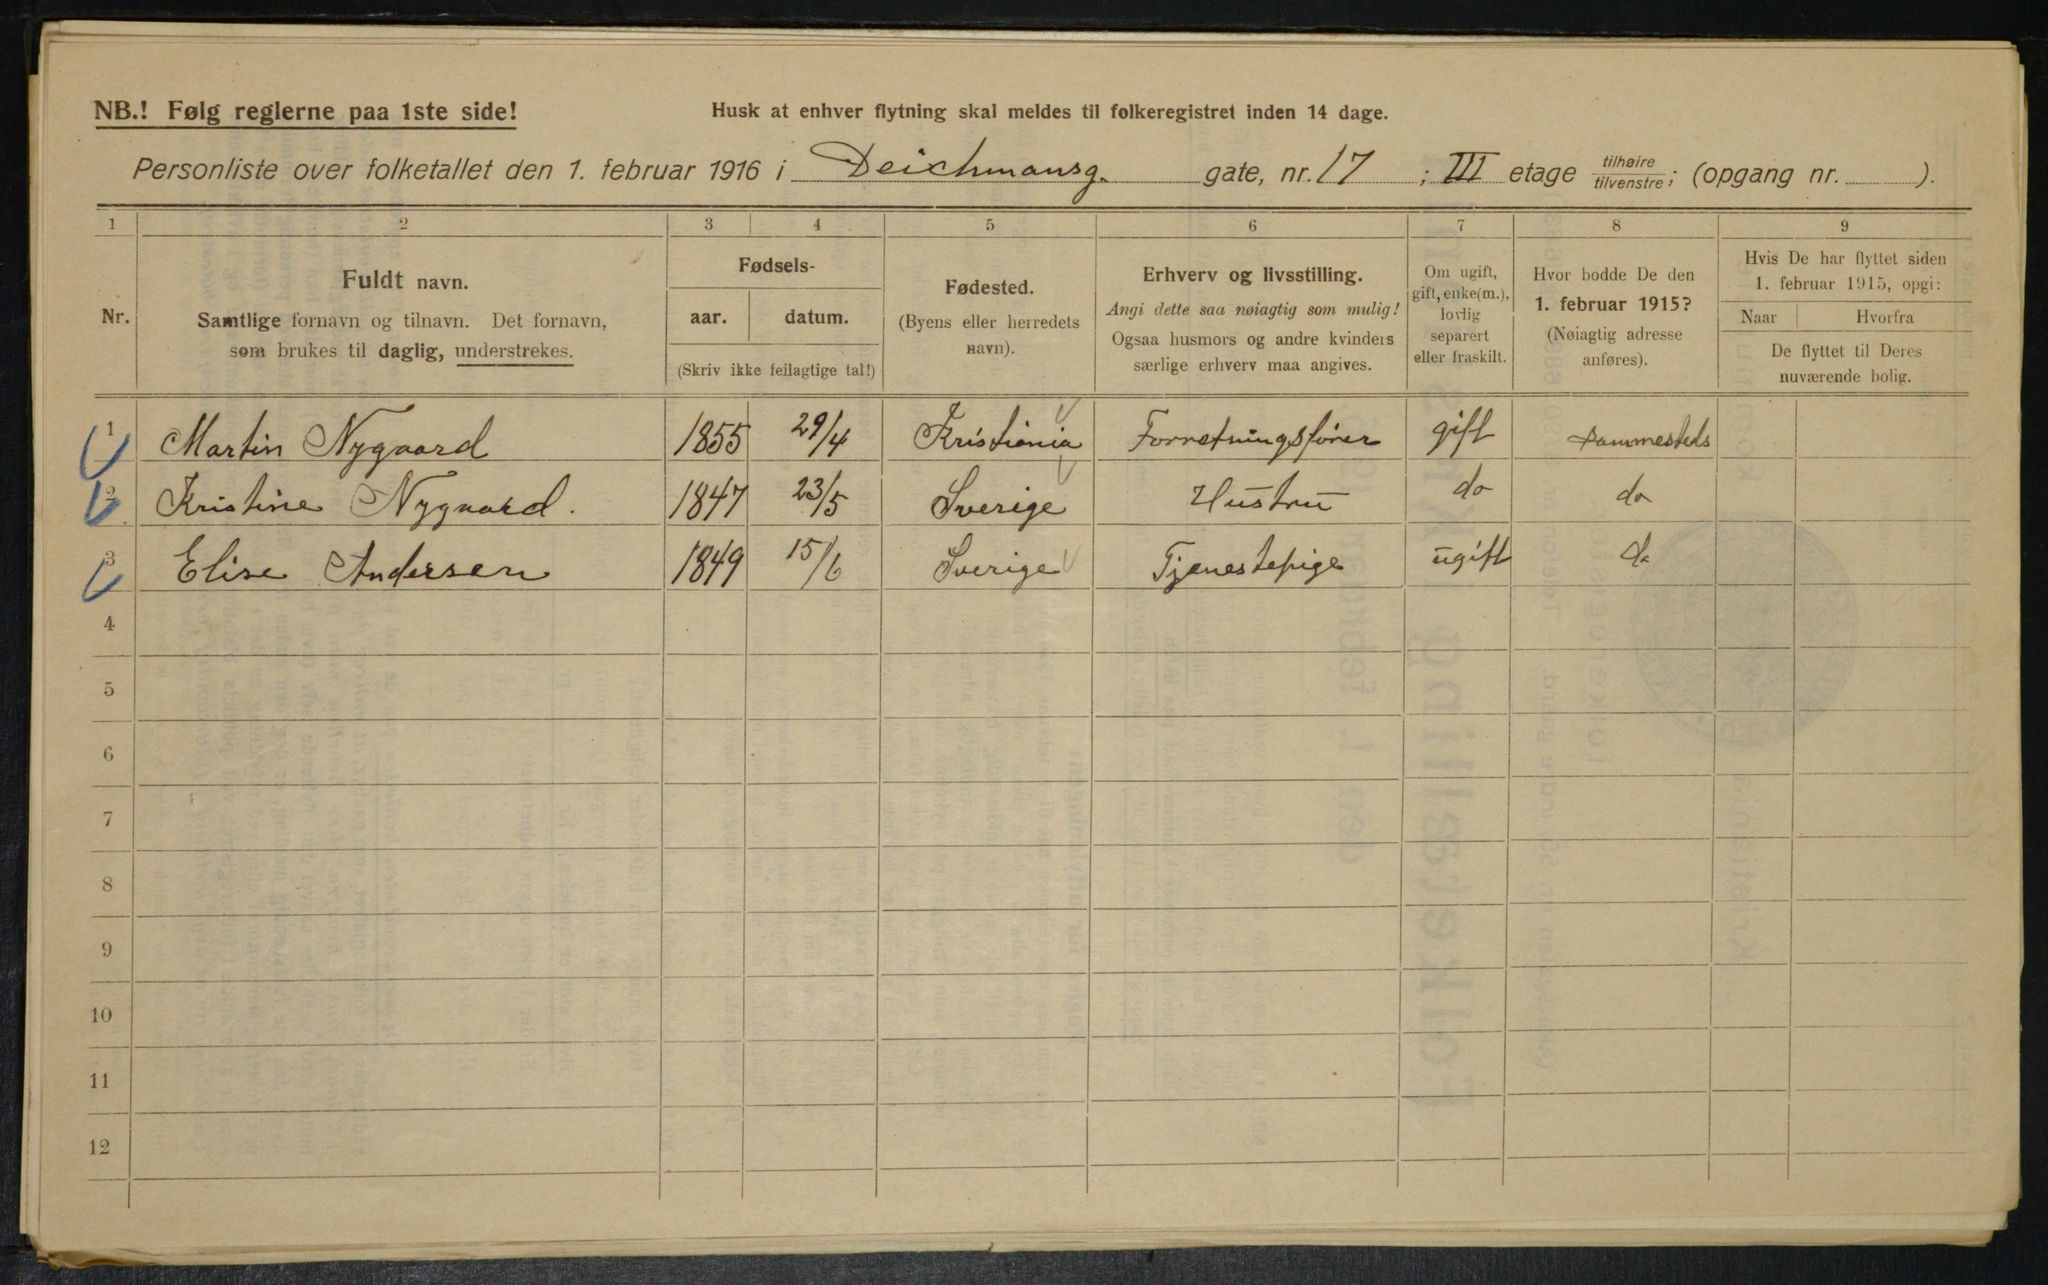 NB.! Følg reglerne paa 1ste side!
Husk at enhver flytning skal meldes til folkeregistret inden 14 dage.
Personliste over folketallet den 1. februar 1916 i Deichmansg. gate, nr. 17 ; III etage tilhøire / tilvenstre; (opgang nr. ).
1 2 3 4 5 6 7 8 9
Nr.
Fuldt navn.
Samtlige fornavn og tilnavn. Det fornavn,
som brukes til daglig, understrekes.
Fødsels-
aar. datum.
(Skriv ikke feilagtige tal!)
Fødested.
(Byens eller herredets
navn).
Erhverv og livsstilling.
Angi dette saa nøiagtig som mulig!
Ogsaa husmors og andre kvinders
særlige erhverv maa angives.
Om ugift,
gift, enke(m.),
lovlig
separert
eller fraskilt.
Hvor bodde De den
1. februar 1915?
(Nøiagtig adresse
anføres).
Hvis De har flyttet siden
1. februar 1915, opgi:
Naar Hvorfra
De flyttet til Deres
nuværende bolig.
1 Martin Nygaard 1855 29/4 Kristiania Forretningsfører gift sammesteds
2 Kristine Nygaard. 1847 23/5 Sverige Hustru do do
3 Elise Andersen 1849 15/6 Sverige Tjenestepige ugift do
4
5
6
7
8
9
10
11
12